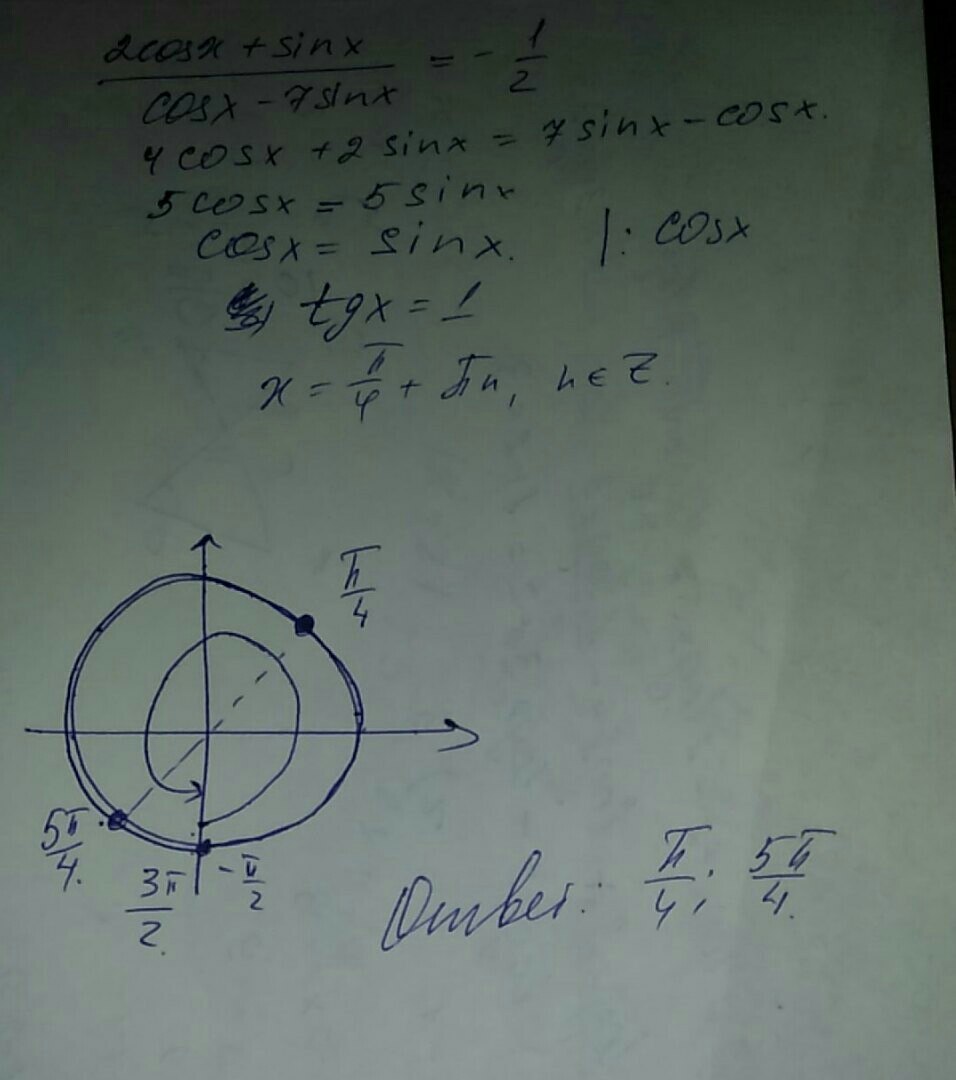 2cosx + sinx / cosx - 7sinx = - 1/2
4cosx + 2 sinx = 7 sinx - cosx.
5cosx = 5 sinx
cosx = sinx. |: cosx
tgx = 1
x = π/4 + πn, n ∈ Z.
π/4
5π/4.
3π/2.
-π/2
Ответ: π/4; 5π/4.